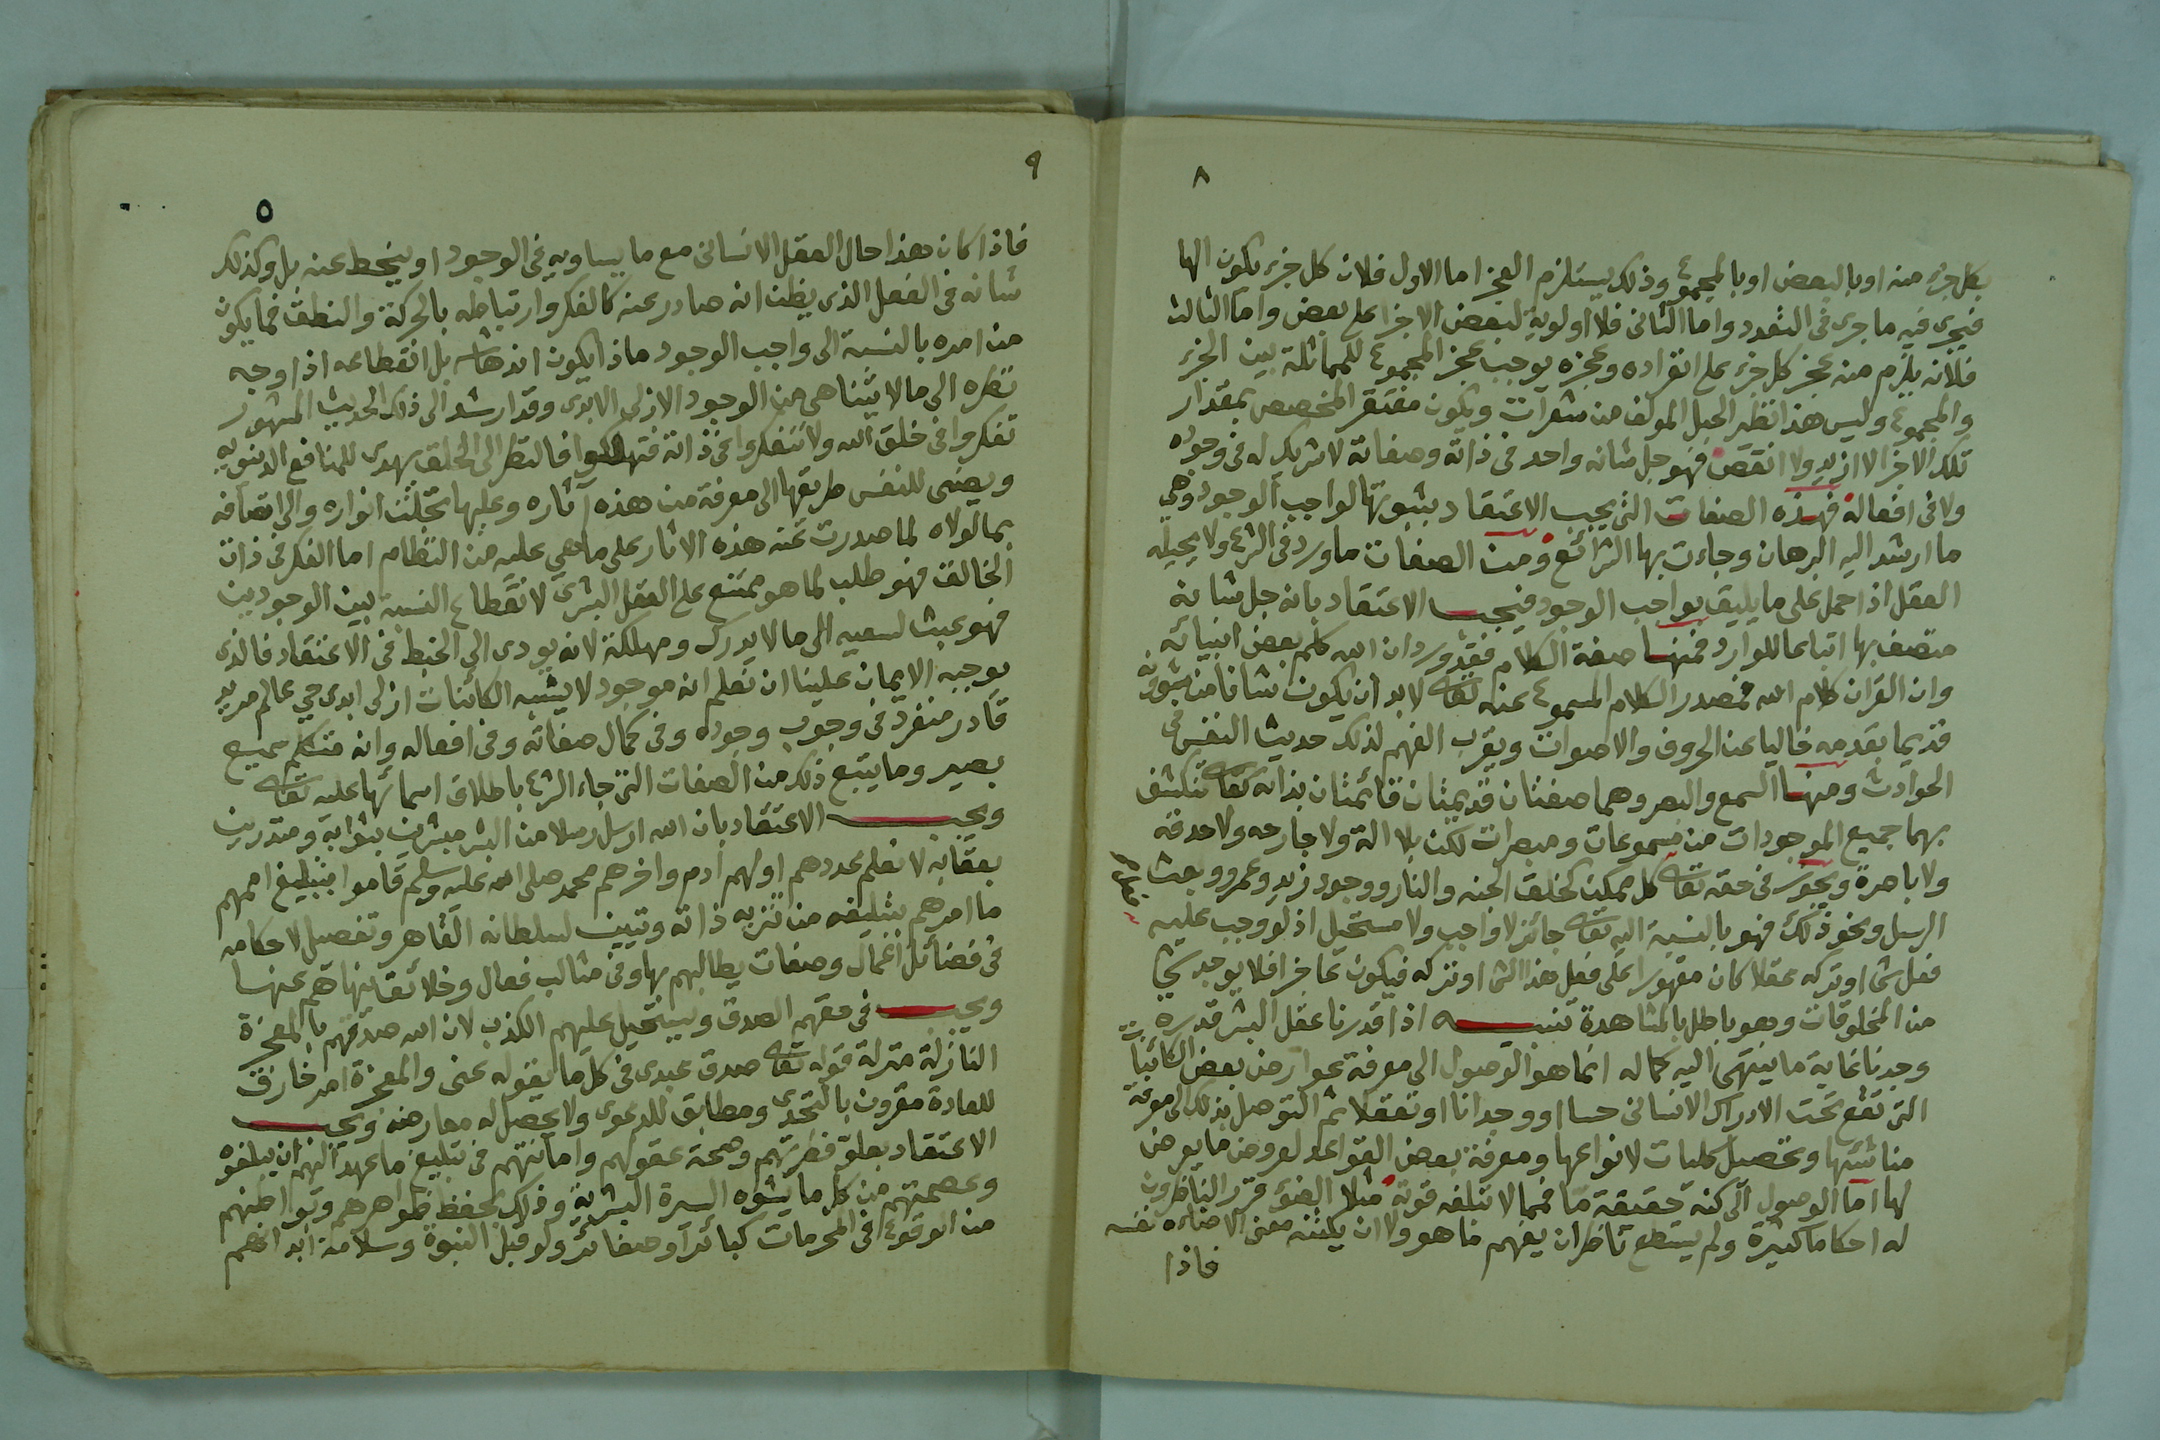 ٨
بكل جزء منه او بالبعض او بالمجموع وذلك يستلزم العجز اما الاول فلان كل جزء يكون الها
فيجري فيه ما جرى فى التعدد واما الثانى فلا اولوية لبعض الاجزا على بعض واما الثالث
فلانه يلزم منه عجز كل جزء على انفراده وعجزه يوجب عجز المجموع للمماثلة بين الجزء
والمجموع وليس هذا نظير الحبل المولف من شعرات ويكون مفتقر المخصص بمقدار
تلك الاجزا لا ازيد ولا انقص فهو جل شانه واحد فى ذاته وصفاته لا شريك له فى وجوده
ولا فى افعاله فهذه الصفات التى يجب الاعتقاد بثبوتها لواجب الوجود وهي
ما ارشد اليه البرهان وجاءت بها الشرائع ومن الصفات ما ورد فى الشرع ولا يحيله
العقل اذا حمل على ما يليق بواجب الوجود فيجب الاعتقاد بانه جل شانه
متصف بها اتباعا للوارد فمنها صفة الكلام فقد ورد ان الله كلم بعض انبيائه
وان القران كلام الله فمصدر الكلام المسموع عنه تعالى لابد ان يكون شانا من شؤنه
قديما بقدمه خاليا عن الحروف والاصوات ويقرب الفهم لذلك حديث النفس فى
الحوادث ومنها السمع والبصر وهما صفتان قديمتان قائمتان بذاته تعالى تنكشف
بهما جميع الموجودات من مسموعات ومبصرات لكن بلا الة ولا جارحه ولا حدقة
ولا باصرة ويجوز فى حقه تعالى كل ممكن كخلق الجنه والنار ووجود زيد وعمرو وبعث
الرسل ونحو ذلك فهو بالنسبة اليه تعالى جائز لا واجب ولا مستحيل اذ لو وجب عليه
فعل شئ او تركه عقلا كان مقهورا على فعل هذا الشئ او تركه فيكون عاجزا فلا يوجد شئ
من المخلوقات وهو باطل بالمشاهدة تنبيه اذا قدرنا عقل البشر قدره
وجدنا غاية ما ينتهى اليه كماله انما هو الوصول الى معرفة عوارض بعض الكائنات
التى تقع تحت الادراك الانسانى حسا او وجدانا او تعقلا ثم التوصل بذلك الى معرفة
مناشئها وتحصيل كليات لانواعها ومعرفة بعض القواعد لعروض ما يعرض
لها اما الوصول الى كنه حقيقة ما فمما لا تبلغه قوته مثلا الضؤ قرر الناظرون
له احكاما كثيرة ولم يستطع ناظر ان يفهم ما هو ولا ان يكتنه معنى الاضاءه نفسه
فاذا
٩
٥
فاذا كان هذا حال العقل الانسانى مع ما يساويه فى الوجود او ينحط عنه بل وكذلك
شانه فى الفعل الذى يظن انه صادر عنه كالفكر وارتباطه بالحركة والنطق فما يكون
من امره بالنسبة الى واجب الوجود ماذا يكون اندهاشه بل انقطاعه اذا وجه
نظره الى ما لا يتناهى من الوجود الازلى الابدى وقد ارشد الى ذلك الحديث المشهور
تفكروا فى خلق الله ولا تتفكروا فى ذاته فتهلكوا فالنظر الى الخلق يهدى للمنافع الدنيويه
ويضئ للنفس طريقها الى معرفة من هذه آثاره وعليها تجلت انواره والى اتصافه
بما لولاه لما صدرت عنه هذه الاثار على ما هي عليه من النظام اما الفكر فى ذات
الخالق فهو طلب لما هو ممتنع على العقل البشرى لانقطاع النسبة بين الوجودين
فهو عبث لسعيه الى ما لا يدرك ومهلكة لانه يودى الى الخبط فى الاعتقاد فالذى
يوجبه الايمان علينا ان نعلم انه موجود لا يشبه الكائنات ازلى ابدى حي عالم مريد
قادر منفرد فى وجوب وجوده وفى كمال صفاته وفى افعاله وانه متكلم سميع
بصير وما يتبع ذلك من الصفات التى جاء الشرع باطلاق اسمائها عليه تعالى
ويجب الاعتقاد بان الله ارسل رسلا من البشر مبشرين بثوابه ومنذرين
بعقابه لا نعلم عددهم اولهم آدم واخرهم محمد صلى الله عليه وسلم قاموا بتبليغ اممهم
ما امرهم بتبليغه من تنزيه ذاته وتبيين لسلطانه القاهر وتفصيل لاحكامه
فى فضائل اعمال وصفات يطالبهم بها وفى مثالب فعال وخلائق ينهاهم عنها
ويجب فى حقهم الصدق ويستحيل عليهم الكذب لان الله صدقهم بالمعجزة
النازلة منزلة قوله تعالى صدق عبدى فى كل ما يقوله عنى والمعجزة امر خارق
للعادة مقرون بالتحدى ومطابق للدعوى ولا يحصل له معارضه ويجب
الاعتقاد بعلو فطرتهم وصحة عقولهم وامانتهم فى تبليغ ما عهد اليهم ان يبلغوه
وعصمتهم من كل ما يشوه السيرة البشرية وذلك بحفظ ظواهرهم وبواطنهم
من الوقوع فى المحرمات كبائر او صغائر ولو قبل النبوة وسلامة ابدانهم